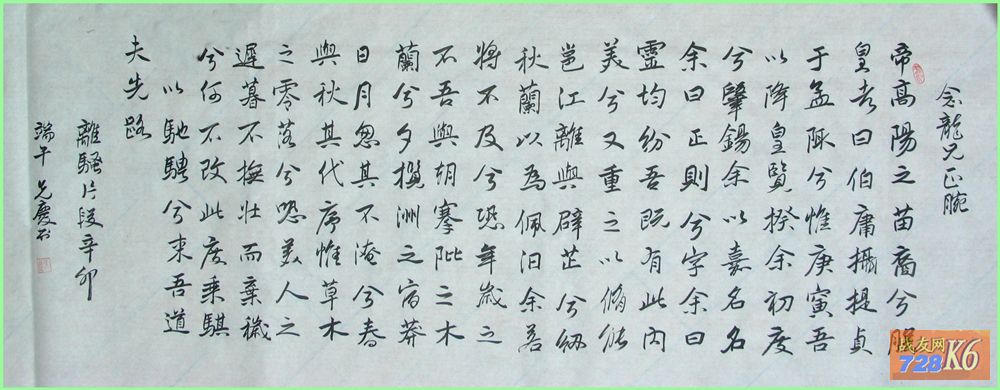 念龍兄正腕
帝高陽之苗裔兮朕
皇考曰伯庸攝提貞
于孟陬兮惟庚寅吾
以降皇覽揆余初度
兮肇錫余以嘉名名
余曰正則兮字余曰
靈均紛吾既有此内
美兮又重之以脩能
邑江離與辟芷兮紉
秋蘭以為佩汩余若
將不及兮恐年歲之
不吾與朝搴阰之木
蘭兮夕攬洲之宿莽
日月忽其不淹兮春
與秋其代序惟草木
之零落兮恐美人之
遲暮不撫壯而棄穢
兮何不改此度乘騏
以馳騁兮來吾道
夫先路
離騷片段辛卯
端午
战友网
728K6